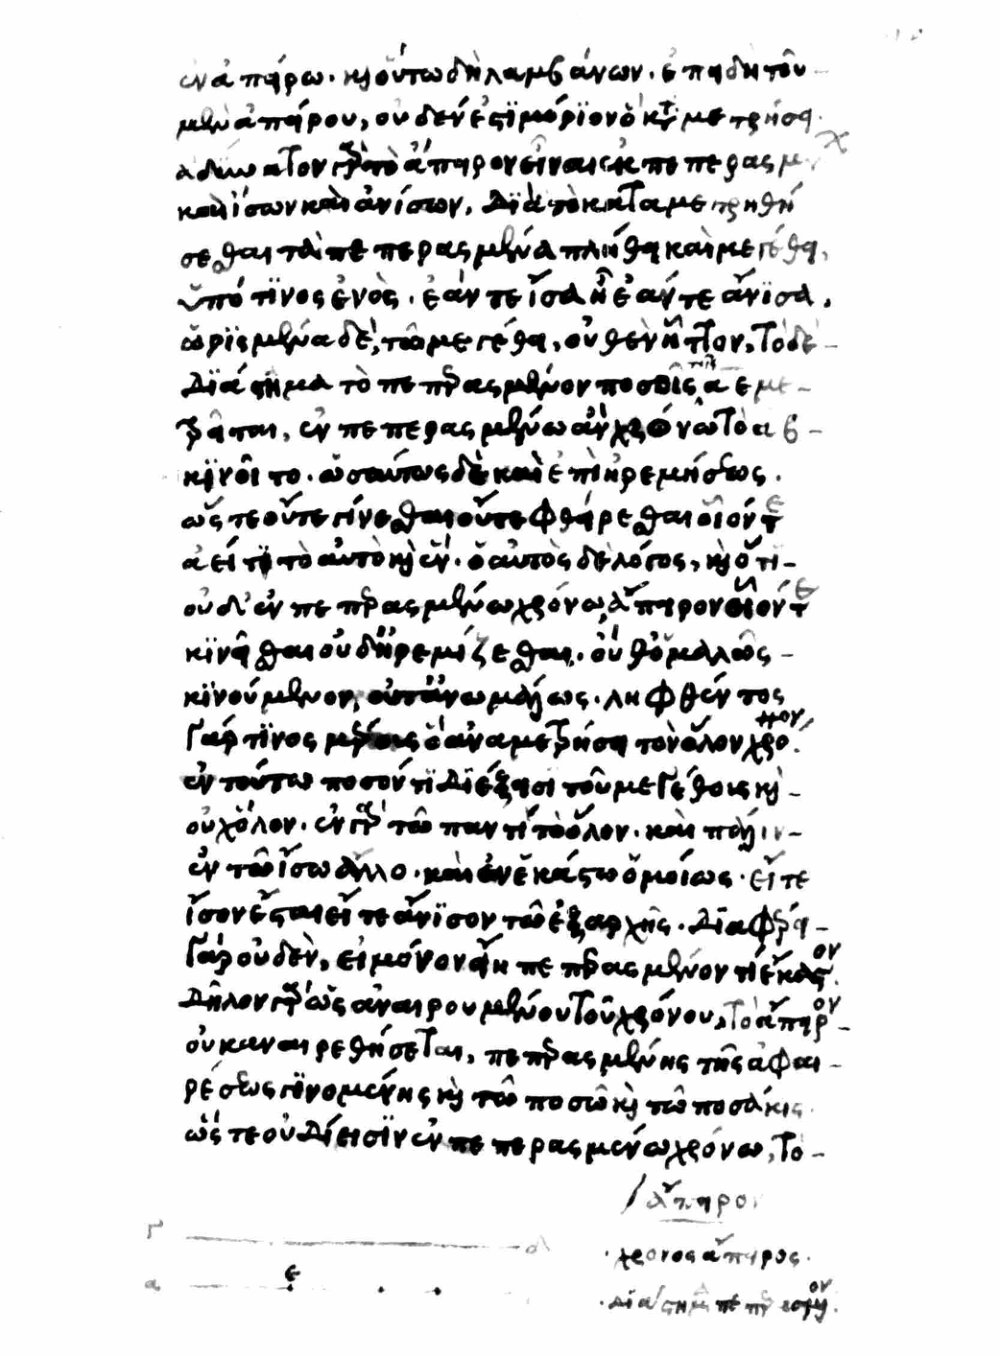 ἐν ἀπείρω. καὶ οὕτω δὴ λαμβάνων. ἐπειδὴ τοῦ
μὲν ἀπείρου, οὐδέν ἐστι μόριον ὃ καταμετρήσει.
ἀδύνατον γὰρ τὸ ἄπειρον εἶναι ἐκ πεπερασμ
καὶ ἴσων καὶ ἀνίσων, διὰ τὸ καταμετρηθή
σεσθαι τὰ πεπερασμένα πλήθει καὶ μεγέθει,
ὑπό τινος ἑνὸς. ἐάν τε ἴσα ἦ ἐάν τε ἄνισα,
ὡρισμένα δὲ, τῶ μεγέθει, οὐθὲν ἧττον, τὸ δὲ
διάστημα τὸ πεπερασμένον ποσοῖς α ε με
τρεῖται, ἐν πεπερασμένω ἂν χρόνω τὸ α β
κινοῖτο. ὡσαύτως δὲ καὶ ἐπὶ ἠρεμήσεως.
ὥστε οὔτε γίνεσθαι οὔτε φθείρεσθαι οἷόν τε
ἀεί τι τὸ αὐτὸ καὶ ἕν. ὁ αὐτὸς δὲ λόγος, καὶ ὅτι
οὐδ' ἐν πεπερασμένω χρόνω, ἄπειρον οἷόν τε
κινεῖσθαι οὐδ' ἠρεμίζεσθαι. οὔθ' ὁμαλῶς
κινούμενον, οὔτ' ἀνωμάλως. ληφθέντος
γάρ τινος μέρους ὃ ἀναμετρήσει τὸν ὅλον χρόνον.
ἐν τούτω ποσόν τι διέξεισι τοῦ μεγέθους καὶ
οὐχ ὅλον. ἐν γὰρ τῶ παντὶ τὸ ὅλον. καὶ πάλιν
ἐν τῶ ἴσω ἄλλο. καὶ ἐν ἑκάστω ὁμοίως. εἴτε
ἴσον ἔσται εἴτε ἄνισον τῶ ἐξ ἀρχῆς. διαφέρει
γὰρ οὐδὲν, εἰ μόνον εἴη πεπερασμένον τι ἕκαστον.
δῆλον γὰρ ὡς ἀναιρουμένου τοῦ χρόνου, τὸ ἄπειρον
οὐκ ἀναιρεθήσεται, πεπερασμένης τῆς ἀφαι
ρέσεως γινομένης καὶ τῶ ποσῶ καὶ τῶ ποσάκις.
ὥστε οὐ δίεισιν ἐν πεπερασμένω χρόνω, τὸ
ἄπειρον
χρόνος ἄπειρος.
διάστημα πεπερασμένον.
γ δ
α ε